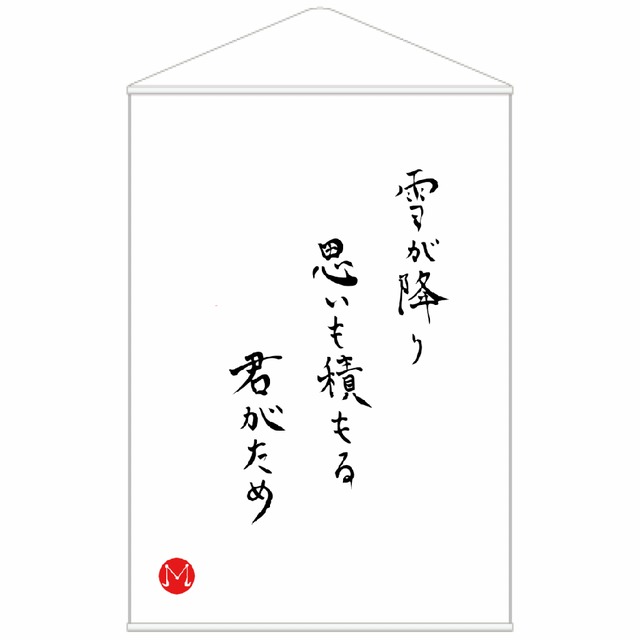 雪が降り
思いも積もる
君がため
M